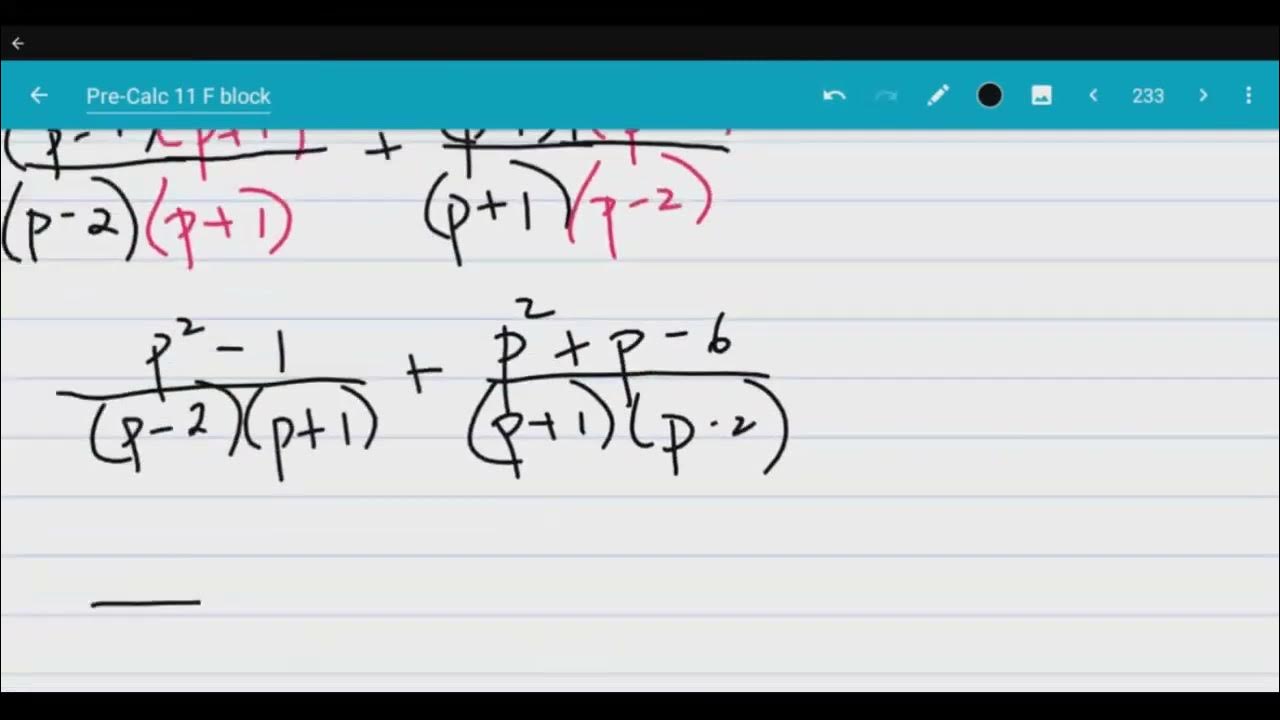 Pre-Calc 11 F block 233
(p+1) + (p
(p-2)(p+1) (p+1)(p-2)
p² - 1 + p² + p - 6
(p-2)(p+1) (p+1)(p-2)